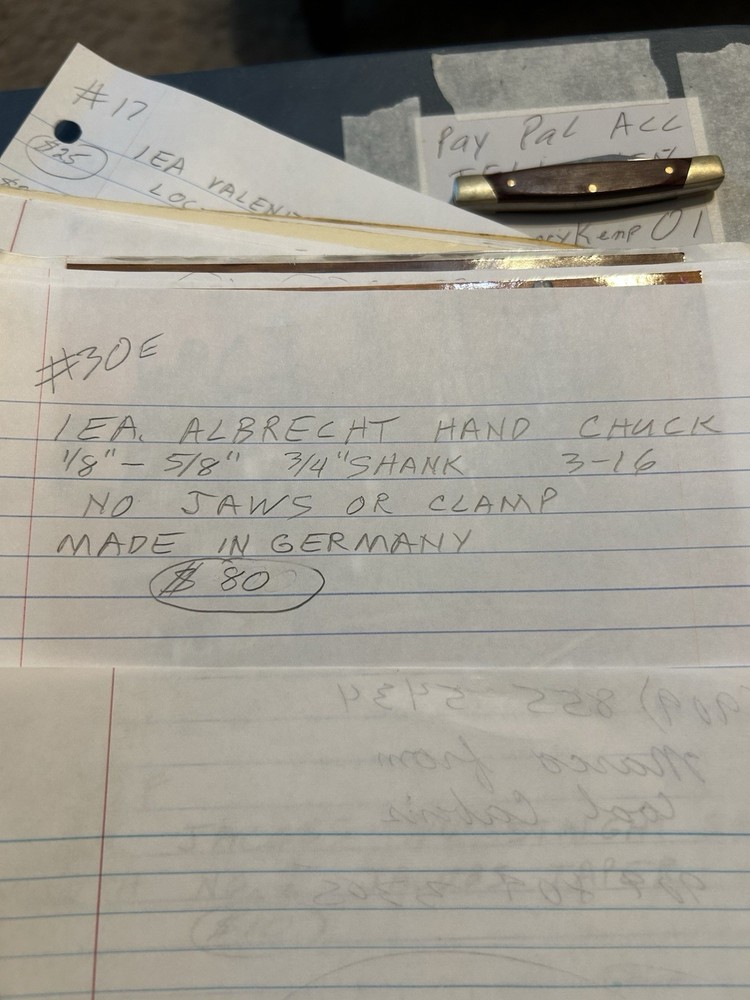 #17
$25
1EA VALENI
LOC
Pay Pal ALL
Kemp 01
#30E
1EA. ALBRECHT HAND CHUCK
1/8" - 5/8" 3/4" SHANK 3-16
NO JAWS OR CLAMP
MADE IN GERMANY
$80
909) 855 5434
Marco from